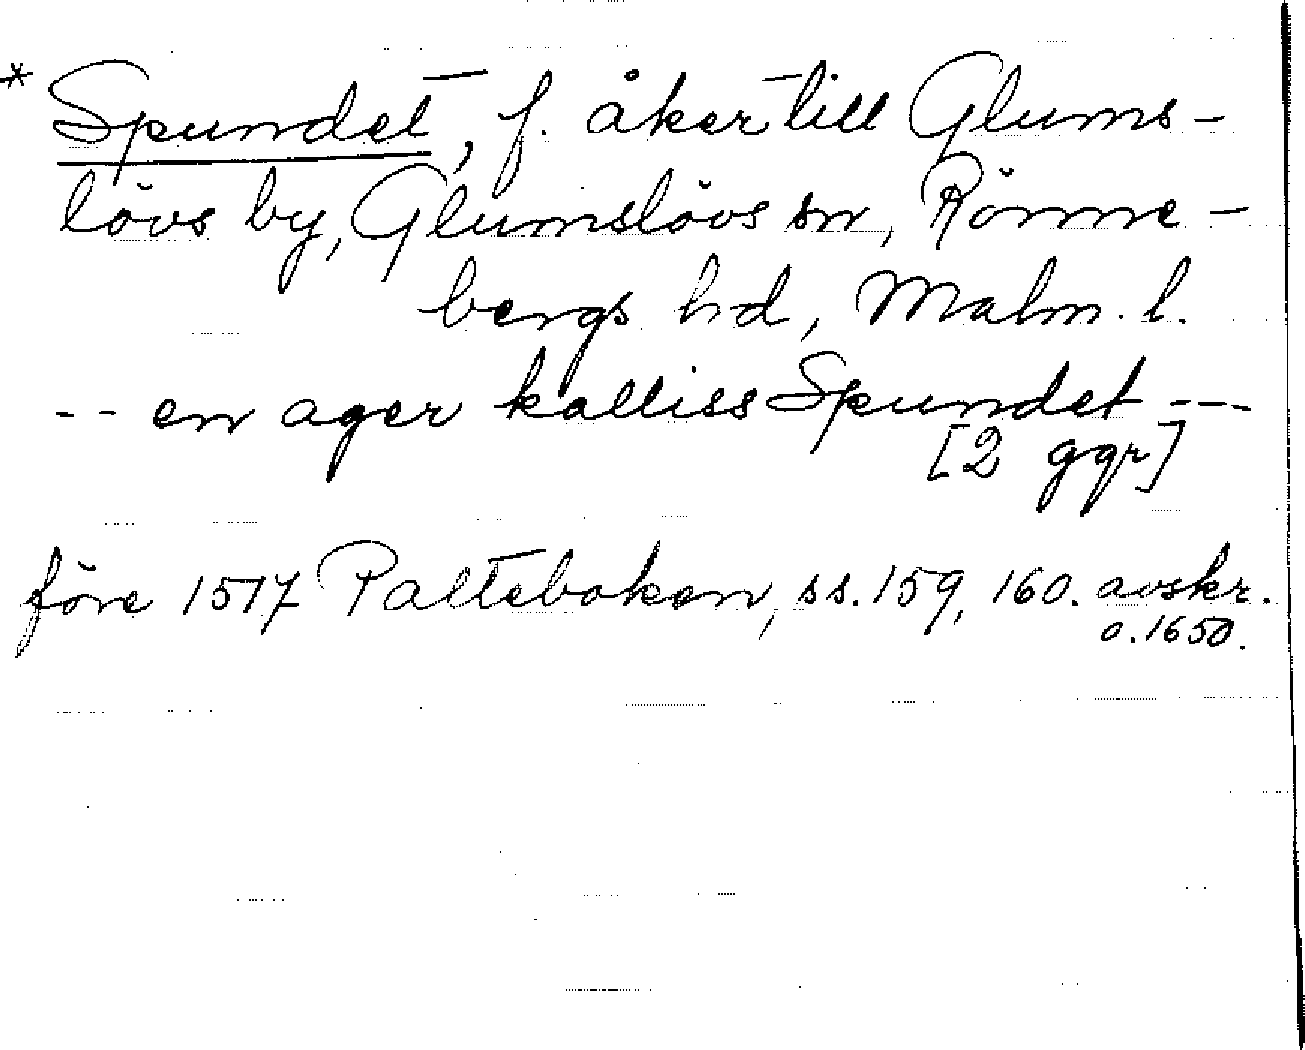 * Spundet, f. åker till Glums-
lövs by, Glumslövs sn, Rönne-
bergs hd, Malm. l.
-- en ager kalliss Spundet ---
[2 ggr]
före 1517 Palteboken, ss. 159, 160. avskr.
o. 1650.